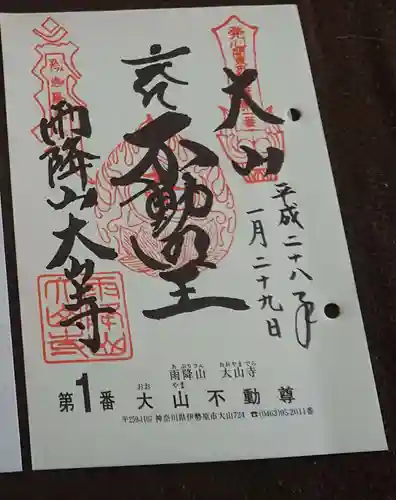 大山
平成二十八年
一月二十九日
不動明王
雨降山大山寺
雨降山 大山寺
あぶりさん おおやまでら
第1番 大山不動尊
おお やま
〒259-1107 神奈川県伊勢原市大山724 ☎(0463)95-2011番